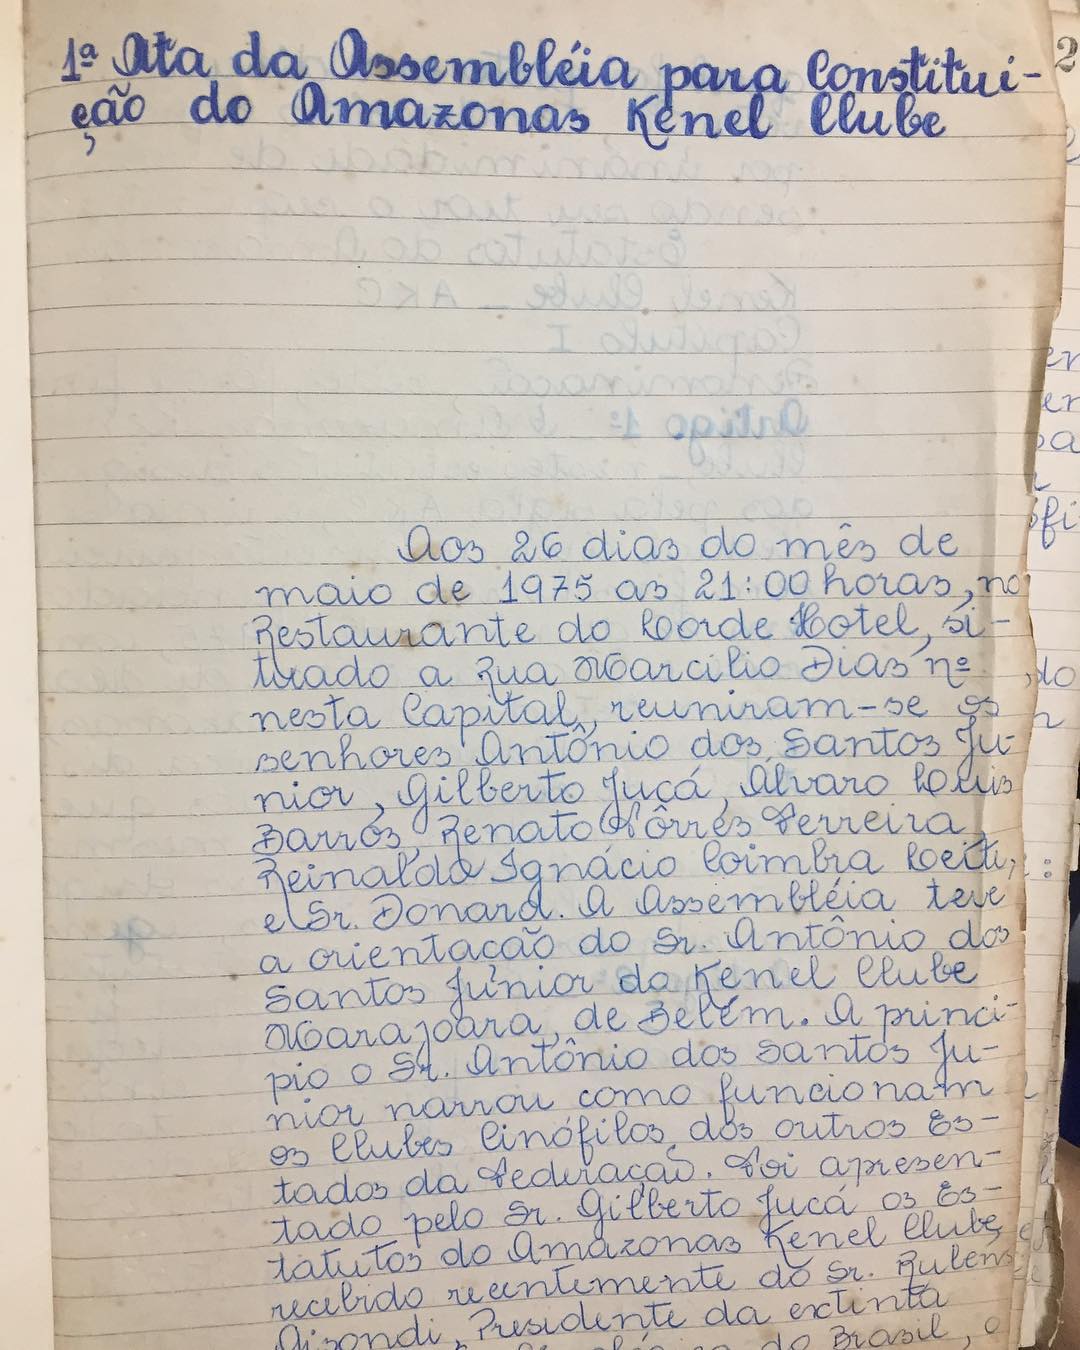 1ª Ata da Assembléia para Constitui-
ção do Amazonas Kenel Clube
Aos 26 dias do mês de
maio de 1975 as 21:00 horas, no
Restaurante do Lorde Hotel, si-
tuado a Rua Marcílio Dias nº
nesta Capital, reuniram-se os
senhores Antônio dos Santos Ju-
nior, Gilberto Jucá, Álvaro Luis
Barros, Renato Tôrres Ferreira,
Reinaldo Ignácio Coimbra Leite,
e Sr. Donard. A Assembléia teve
a orientação do Sr. Antônio dos
Santos Júnior do Kenel Clube
Marajoara, de Belém. A princí-
pio o Sr. Antônio dos Santos Ju-
nior narrou como funcionam
os Clubes Cinófilos dos outros Es-
tados da Federação. Foi apresen-
tado pelo Sr. Gilberto Jucá os Es-
tatutos do Amazonas Kenel Clube,
recebido recentemente do Sr. Rubens
Gisondi, Presidente da extinta
do Brasil, o
2